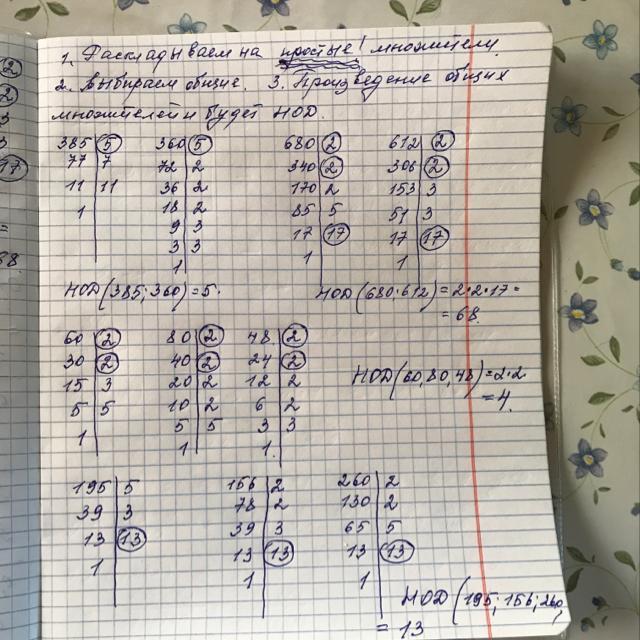 1. Раскладываем на простые! множители.
2. Выбираем общие. 3. Произведение общих
множителей и будет НОД.
385 | 5
77 | 7
11 | 11
1
360 | 5
72 | 2
36 | 2
18 | 2
9 | 3
3 | 3
1
680 | 2
340 | 2
170 | 2
85 | 5
17 | 17
1
612 | 2
306 | 2
153 | 3
51 | 3
17 | 17
1
НОД(385;360)=5.
НОД(680;612)=2·2·17=
=68.
60 | 2
30 | 2
15 | 3
5 | 5
1
80 | 2
40 | 2
20 | 2
10 | 2
5 | 5
1
48 | 2
24 | 2
12 | 2
6 | 2
3 | 3
1.
НОД(60,80,48)=2·2
=4.
195 | 5
39 | 3
13 | 13
1
156 | 2
78 | 2
39 | 3
13 | 13
1
260 | 2
130 | 2
65 | 5
13 | 13
1
НОД (195;156;260,
= 13